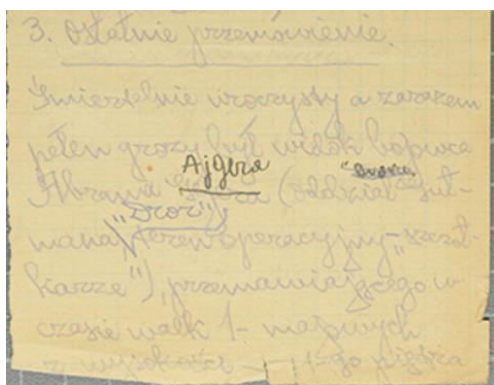 3. Ostatnie przemówienie.
Śmiertelnie uroczysty a zarazem
pełen grozy był widok bojowca
Ajgera
Abrama (oddział Gut-
"Dror"
mana, teren operacyjny - "szczot-
karze"), przemawiającego w
czasie walk 1-majowych
z wysokości 1-go piętra